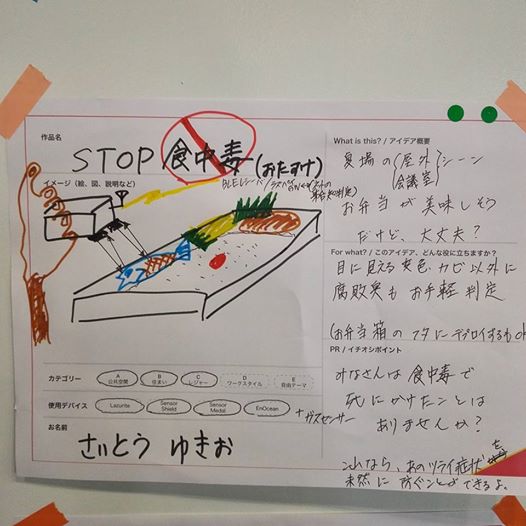 作品名
STOP 食中毒 (おたすけ)
イメージ(絵、図、説明など)
What is this? / アイデア概要
夏場の(屋外)シーン
(会議室)
お弁当が美味しそう
だけど、大丈夫?
For what? / このアイデア、どんな役に立ちますか?
目に見える変色、カビ以外に
腐敗臭もお手軽判定
(お弁当箱のフタにデプロイするもok
PR / イチオシポイント
みなさんは食中毒で
死にかけたことは
ありませんか?
なら、あのツライ症状を
未然に防ぐことができるよ。
カテゴリー
A 公共空間
B 住まい
C レジャー
D ワークスタイル
E 自由テーマ
使用デバイス
Lazurite
Sensor Shield
Sensor Medal
EnOcean
+ ガスセンサー
お名前
さいとう ゆきお